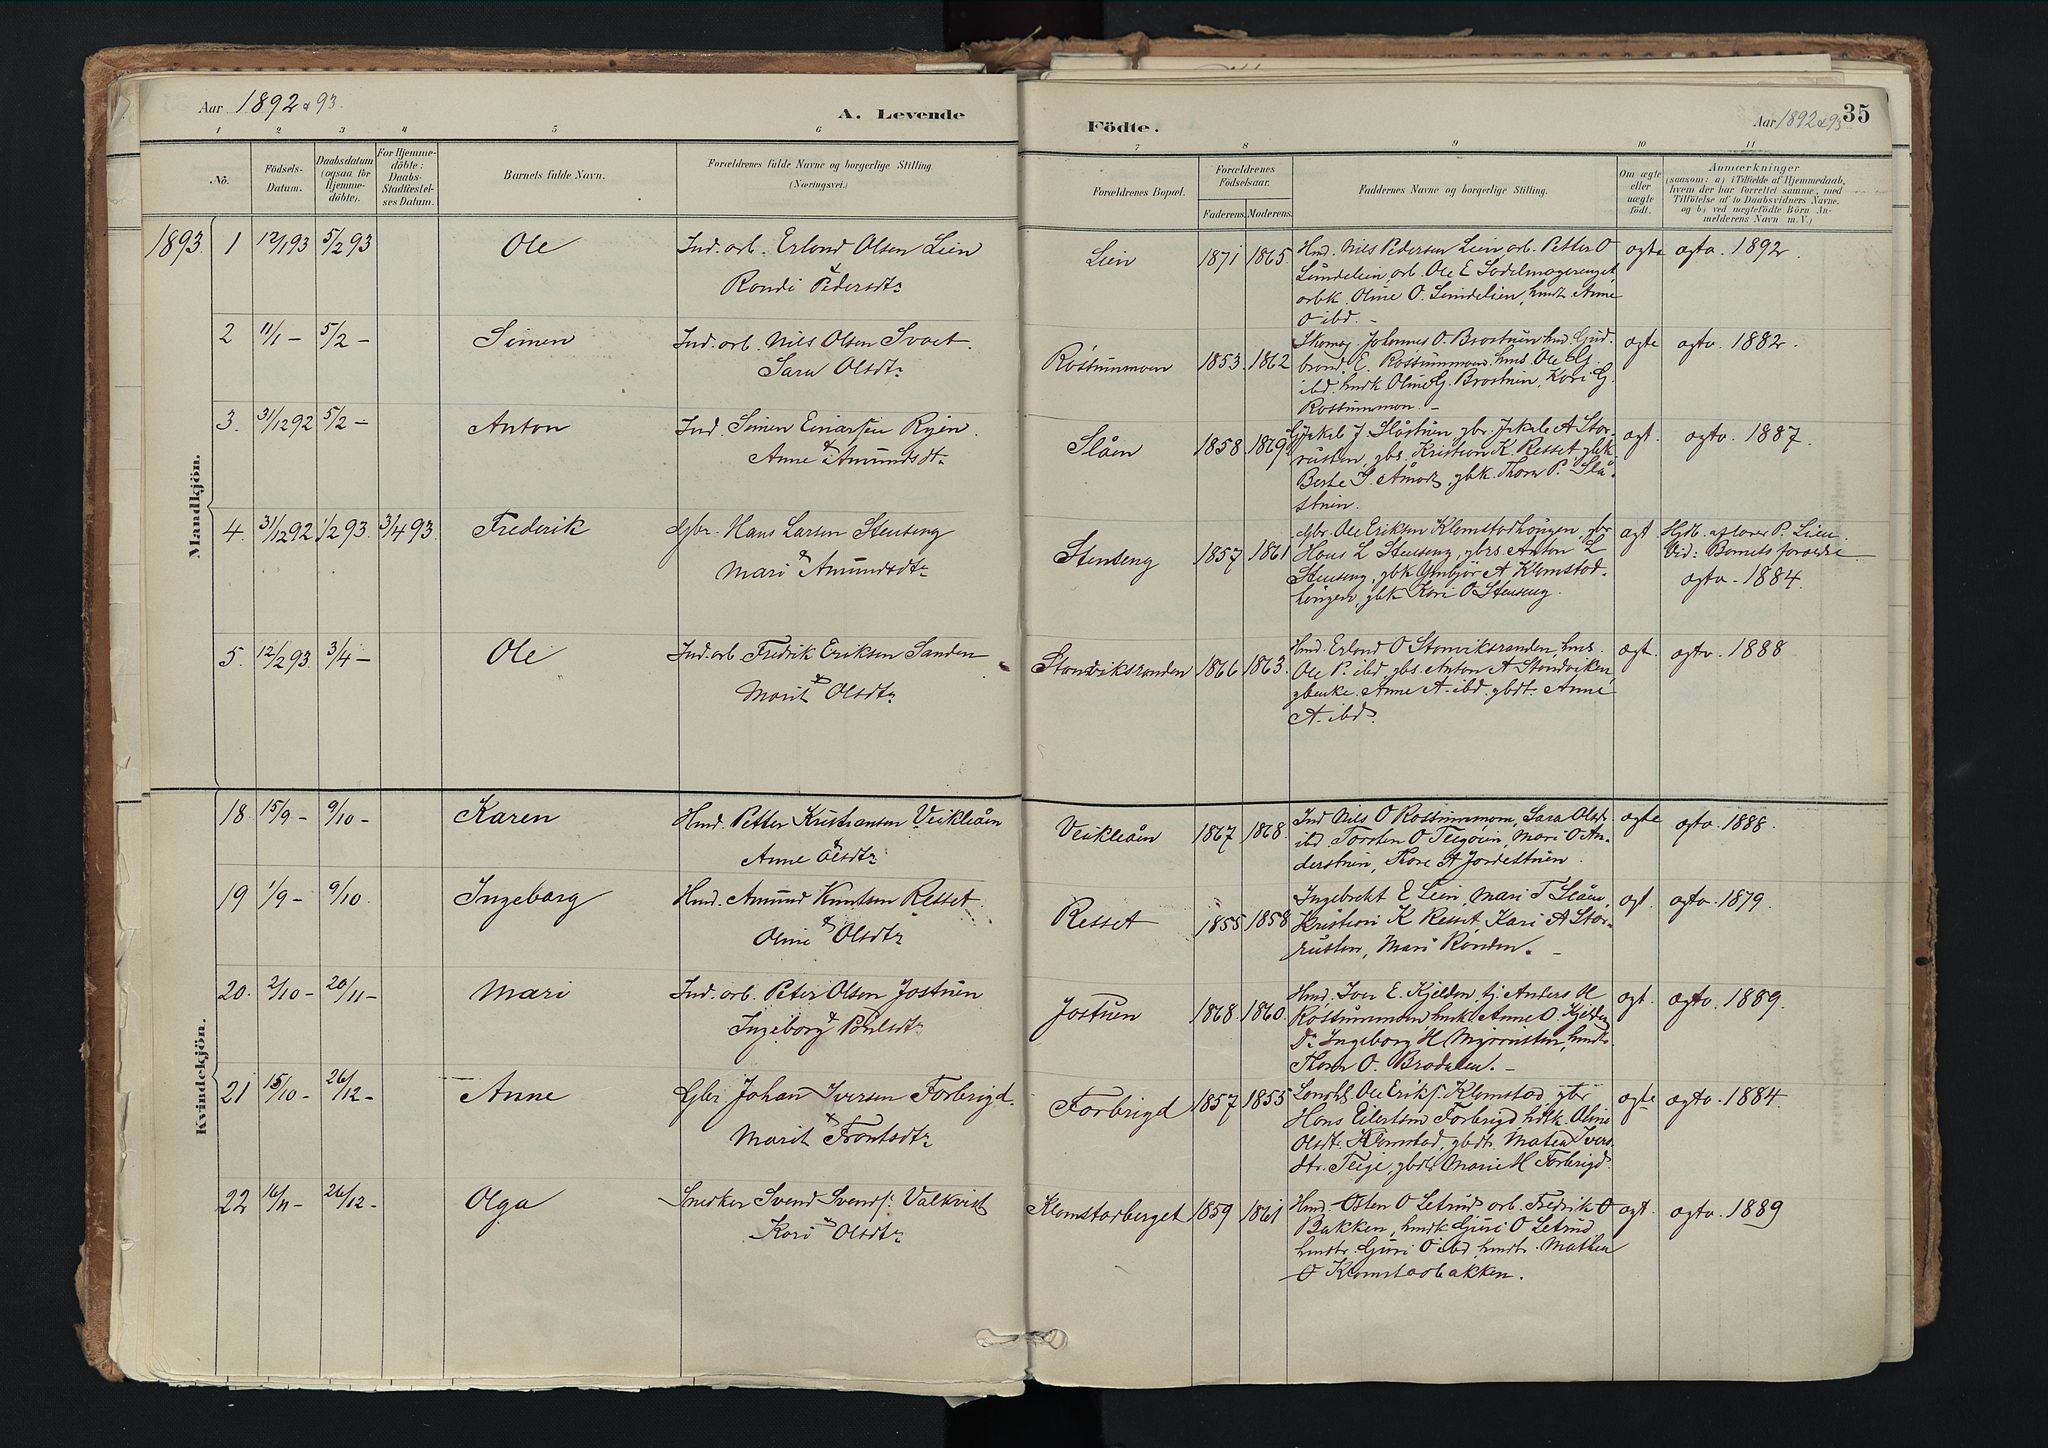 Aar 1892 & 93.
A. Levende
Födte.
Aar 1892 & 93
35
1 2 3 4 5 6 7 8 9 10 11
No.
Födsels-
Datum.
Daabsdatum
(ogsaa for
Hjemme-
döbte).
For Hjemme-
döbte:
Daabs-
Stadfæstel-
ses Datum.
Barnets fulde Navn.
Forældrenes fulde Navne og borgerlige Stilling
(Næringsvei.)
Forældrenes Bopæl.
Forældrenes
Födselsaar.
Faderens. Moderens.
Faddernes Navne og borgerlige Stilling.
Om ægte
eller
uægte
födt.
Anmærkninger
(saasom: a) i Tilfælde af Hjemmedaab,
hvem der har forrettet samme, med
Tilföielse af to Daabsvidners Navne,
og b) ved uægtefödte Börn An-
melderens Navn m. V.)
Mandkjön.
1893. 1 12/1 93 5/2 93 Ole
Ind. arb. Erland Olsen Lien
&
Rondi Pedersdtr
Lien 1871 1865
Hmd. Nils Pedersen Lien, arb. Petter O
Lundelien, arb. Ole E
arbk. Oline O. Lundelien, hmdt Anne
O ibd. -
ægte ægtv. 1892
2 11/1 - 5/2 - Simen
Ind. arb. Nils Olsen Svaet.
Sara Olsdtr
Rostummoen 1853 1862
Skomag. Johannes O. Brostuen hmd. Gud-
brand E. Rostummoen, hms. Ole G.
ibd. hmdk Oline G. Brostuen, Kari G.
Rostummoen. -
ægte ægtv. 1882
3. 31/12 92 5/2 - Anton
Ind. Simen Einarsen Ryen.
&
Anne Amundsdtr
Slåen 1858 1869
Jakob J. Slåstuen, gbr. Jakob A Stor-
rusten, gbs. Kristian K Resset, gbk
Berte S. Åmot, gbk. Thora P. Slå-
stuen.
ægt. ægtv. 1887.
4. 31/12 92 1/2 93. 3/4 93. Frederik
Gbr. Hans Larsen Stenseng
&
Mari Amundsdtr
Stenseng 1857 1861
gbr Ole Eriksen Klomstadhaugen, gbr
Hans L Stenseng, gbrs Anton L
Stenseng, gbk Ymbjør A Klomstad-
haugen, gbk Kari O Stenseng.
ægt Hjd. af Lærer P. Lien.
Vid: Barnets forældre
ægtv. 1884.
5. 12/2 93. 3/4 - Ole
Ind. arb. Fredrik Eriksen Sanden
&
Marit Olsdtr
Stamviksranden 1866 1863.
Hmd. Erland O Stamviksranden, hms.
Ole P. ibd, gbs. Anton A Stamviken,
gbenke. Anne A. ibd. gbdt. Anne
A. ibd.
ægt. ægtv. 1888
Kvindekjön.
18. 15/9 - 9/10 - Karen
Hmd. Petter Kristiansen Veikleåen
&
Anne Olsdtr
Veikleåen 1867 1868.
Ind Nils O Rostummoen, Sara Olsdt
ibd. Torsten O Teigøien, Mari O An-
derstuen, Thore A Jordestuen.
ægte ægtv. 1888.
19 1/9 - 9/10. Ingeborg
Hmd. Amund Knutsen Resset.
&
Oline Olsdtr
Resset 1855 1858
Ingebrekt E Lien, Mari T Slåen,
Kristian K Resset, Kari A Stor-
rusten, Mari Randen. -
ægt. ægtv. 1879.
20. 2/10 - 20/11 - Mari
Ind. arb. Peter Olsen Jostuen
&
Ingeborg Pålsdtr
Jostuen 1868. 1860.
Hmd. Iver E. Kjelden, tj. Anders H
Rostummoen hmk. Anne O. Kjelden
Do Ingeborg H , hmdt
Thora O. Brodalen. -
ægt. ægtv. 1889.
21 15/10 - 26/12 - Anne
Gbr Johan Iversen Forbrigd.
&
Marit Frantsdtr
Forbrigd 1857 1855
Lensm. Ole Eriks. Klomstad, gbr
Hans Eilertsen Forbrigd, hdk. Oline
Olsdt. Klomstad, gbdt. Mathea Ivers-
dtr. Teige, gbdt. Marie H Forbrigd.
ægte ægtv. 1884
22 16/11 - 26/12 - Olga
Snedker Svend Svends. Valkvist
&
Kari Olsdtr
Klomstadberget 1859 1861
Hmd. Østen O Letrud, arb. Fredrik O
Bakken, hmdk Guri O Letrud,
hmdtr. Guri O ibd, hmdtr. Mathea
O Klomstadbakken.
ægt. ægtv. 1889